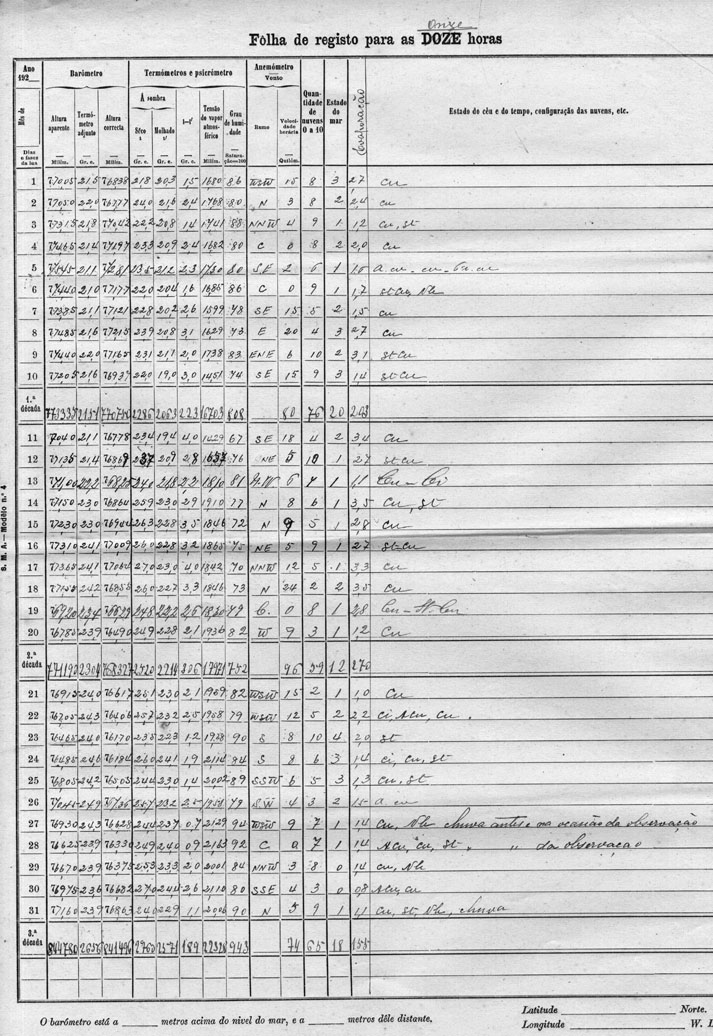 Onze
Fôlha de registo para as DOZE horas
Ano 192__
Mês de
Dias e fases da lua
Barómetro
Altura aparente — Milím.
Termómetro adjunto — Gr. c.
Altura correcta — Milím.
Termómetros e psicrómetro
À sombra
Sêco t — Gr. c.
Molhado t' — Gr. c.
t—t' — Gr. c.
Tensão do vapor atmosférico — Milím.
Grau de humidade — Saturação=100
Anemómetro — Vento
Rumo
Velocidade horária — Quilóm.
Quantidade de nuvens 0 a 10
Estado do mar
Evaporação
Estado do céu e do tempo, configuração das nuvens, etc.
1 77005 21,5 76838 21,8 20,3 1,5 1680 86 WSW 15 8 3 2,7 cu
2 77050 22,0 76777 24,0 21,6 2,4 1768 80 N 3 8 2 2,4 cu
3 77315 21,8 77042 22,2 20,8 1,4 1741 88 NNW 4 9 1 1,2 cu, st
4 77465 21,4 77197 23,3 20,9 2,4 1682 80 C 0 8 2 2,0 cu
5 21,1 77281 23,5 21,2 2,3 1730 80 SE 2 6 1
6 77440 21,0 77177 22,0 20,4 1,6 1685 86 C 0 9 1 1,7 st cu, Nb
7 77385 21,1 77121 22,8 20,2 2,6 1599 78 SE 15 5 2 1,5 cu
8 77485 21,6 77215 23,9 20,8 3,1 1629 73 E 20 4 3 2,7 cu
9 77440 22,0 77165 23,1 21,1 2,0 1738 83 ENE 6 10 2 3,1 st cu
10 77205 21,6 76937 22,0 19,0 3,0 1451 74 SE 15 9 3 1,4 st cu
1.ª década 2286 2063 223 16703 808 80 76 20
11 77040 21,1 76778 23,4 19,4 4,0 1429 67 SE 18 4 2 3,4 cu
12 77135 21,4 76869 23,7 20,9 2,8 1657 76 NE 5 10 1 2,7 st cu
13 24,0 21,8 2,2 1810 81 6 7 1 1,1 Cu - Ci
14 77150 23,0 76864 25,9 23,0 2,9 1910 77 N 8 6 1 3,5 cu, st
15 77230 23,0 76944 26,3 22,8 3,5 1846 72 N 9 5 1 2,8 cu
16 77310 24,1 77009 26,0 22,8 3,2 1865 75 NE 5 9 1 2,7 st cu
17 77365 24,1 77064 27,0 23,0 4,0 1842 70 NNW 12 5 1 3,3 cu
18 77155 24,2 76855 26,0 22,7 3,3 1846 73 N 24 2 2 3,5 cu
19 24,8 22,2 2,6 79 C. 0 8 1 2,8 Cu - St. Cu
20 76785 23,9 76490 24,9 22,8 2,1 1936 82 W 9 3 1 1,2 cu
2.ª década 306 752 96 59 12 270
21 76915 24,0 76617 25,1 23,0 2,1 1959 82 WSW 15 2 1 1,0 cu
22 76705 24,3 76406 25,7 23,2 2,5 1958 79 WSW 12 5 2 2,2 ci, Acu, cu.
23 76465 24,0 76170 23,5 22,3 1,2 1928 90 S 8 10 4 2,0 st
24 76485 24,6 76184 26,0 24,1 1,9 2114 84 S 8 6 3 1,4 ci, cu, st
25 76805 24,2 76505 24,4 23,0 1,4 2002 89 SSW 6 5 3 1,3 cu, st
26 24,9 25,7 23,2 2,5 79 SW 4 3 2 1,5 a. cu
27 76930 24,3 76628 24,4 23,7 0,7 2129 94 WSW 9 7 1 1,4 cu, Nb chuva antes e na ocasião da observação
28 76625 23,9 76330 24,9 24,0 0,9 2163 92 C 0 7 1 1,4 Acu, cu, st " " da observação
29 76670 23,9 76375 25,3 23,3 2,0 2001 84 NNW 3 8 0 1,4 cu, Nb
30 76975 23,6 76682 27,0 24,4 2,6 2110 80 SSE 4 3 0 0,8 Acu, cu
31 77160 23,9 76863 24,0 22,9 1,1 2006 90 N 5 9 1 1,1 cu, st, Nb, chuva
3.ª década 844780 2656 841496 2760 2571 189 943 74 65 18 155
S. M. A. — Modêlo n.º 4
O barómetro está a ______ metros acima do nível do mar, e a ______ metros dêle distante.
Latitude ______ Norte.
Longitude ______ W.